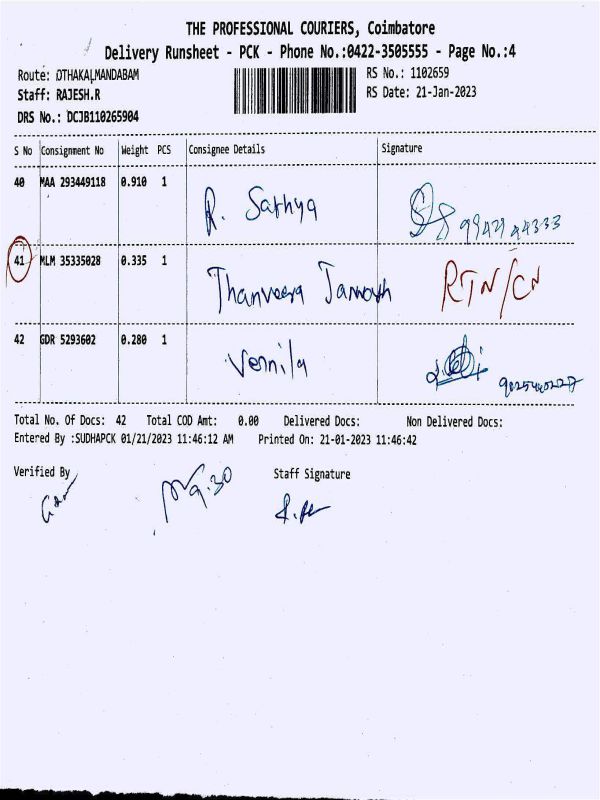 THE PROFESSIONAL COURIERS, Coimbatore
Delivery Runsheet - PCK - Phone No.:0422-3505555 - Page No.:4
Route: OTHAKALMANDABAM RS No.: 1102659
Staff: RAJESH.R RS Date: 21-Jan-2023
DRS No.: DCJB110265904
S No Consignment No Weight PCS Consignee Details Signature
40 MAA 293449118 0.910 1 R. Sathya
41 MLM 35335028 0.335 1 Thanveera RTN/CN
42 GDR 5293602 0.280 1 Vernila
Total No. Of Docs: 42 Total COD Amt: 0.00 Delivered Docs: Non Delivered Docs:
Entered By :SUDHAPCK 01/21/2023 11:46:12 AM Printed On: 21-01-2023 11:46:42
Verified By 9.30 Staff Signature